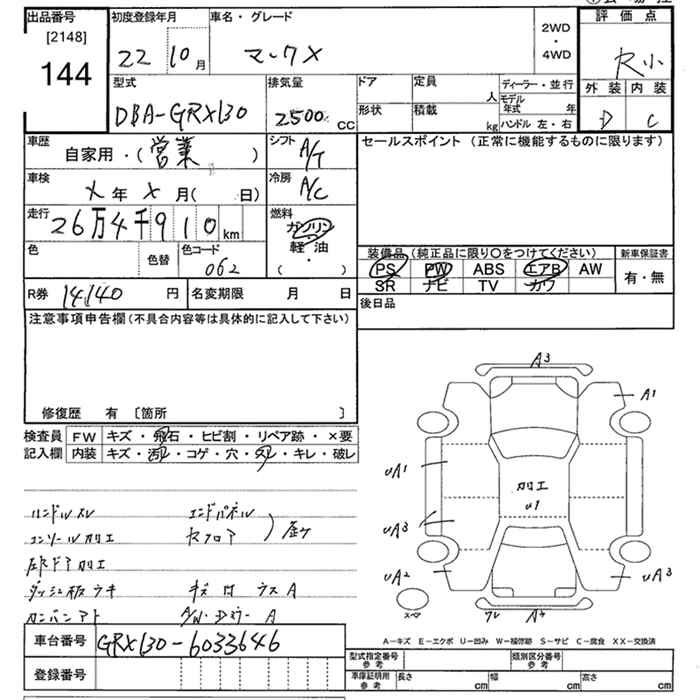 出品番号 初度登録年月 車名・グレード 評価点
[2148]
144
22 10月 マークX 2WD・4WD R小
型式 排気量 ドア 定員 人 ディーラー・並行 外装 内装
DBA-GRX130 2500 CC 形状 積載 kg モデル年式 年 D C
ハンドル 左・右
車歴 自家用・(営業) シフト A/T セールスポイント (正常に機能するものに限ります)
車検 X年X月( 日) 冷房 A/C
走行 26万4千910km 燃料 ガソリン・軽油 ( ・ )
色 色替 色コード 062 装備品 (純正品に限り〇をつけてください) 新車保証書
PS PW ABS エアB AW 有・無
SR ナビ TV カワ
R券 14140円 名変期限 月 日 後日品
注意事項申告欄(不具合内容等は具体的に記入して下さい)
修復歴 有 [箇所 ]
検査員 FW キズ・飛石・ヒビ割・リペア跡・×要
記入欄 内装 キズ・汚れ・コゲ・穴・スレ・キレ・破レ
ハンドルスレ エンドパネル
コンソール加工 セフロア 歪ケ
ドア加工
ダッシュ板ウキ キズ ウスA
カンバンアト A
A3
A1
UA1
加工
U1
UA3
UA2
UA3
スペア
ワレ
A-キズ E-エクボ U-凹み W-補修跡 S-サビ C-腐食 XX-交換済
車台番号 GRX130-6033646
登録番号
型式指定番号 参考 類別区分番号 参考
車庫証明用 参考 長さ cm 幅 cm 高さ cm